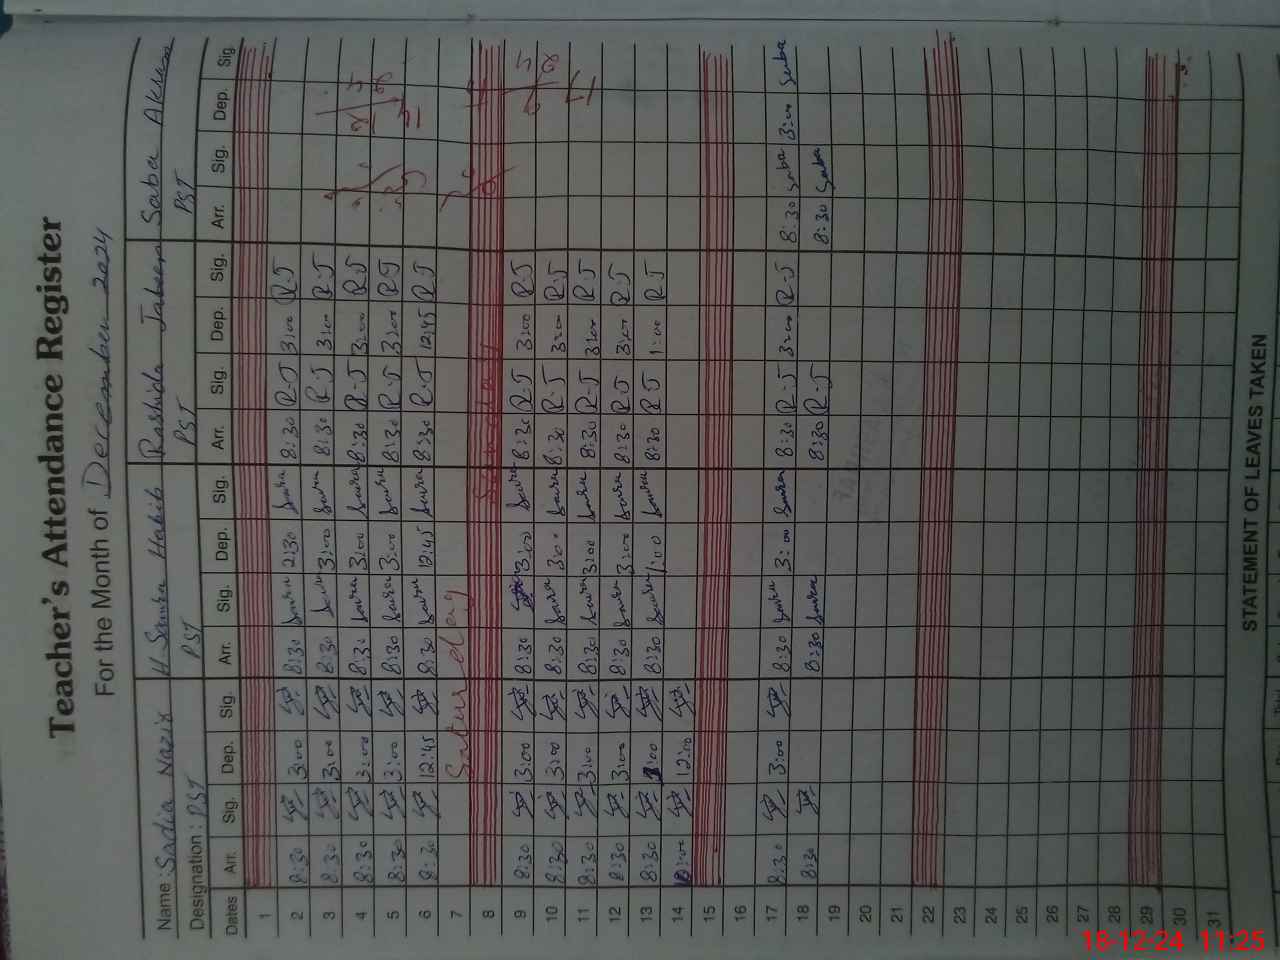 Teacher's Attendance Register
For the Month of December 2024
Name: Sadia Nazir H Saira Habib Rashida Jabeen Saba Akram
Designation: PST PST PST PST
Dates Arr. Sig. Dep. Sig. Arr. Sig. Dep. Sig. Arr. Sig. Dep. Sig. Arr. Sig. Dep. Sig.
1
2 8:30 3:00 8:30 Saira 2:30 Saira 8:30 R.J 3:00 R.J
3 8:30 3:00 8:30 Saira 3:00 Saira 8:30 R.J 3:00 R.J
4 8:30 3:00 8:30 Saira 3:00 Saira 8:30 R.J 3:00 R.J
5 8:30 3:00 8:30 Saira 3:00 Saira 8:30 R.J 3:00 R.J
6 8:30 12:45 8:30 Saira 12:45 Saira 8:30 R.J 12:45 R.J
7 Saturday
8
9 8:30 3:00 8:30 3:00 Saira 8:30 R.J 3:00 R.J
10 8:30 3:00 8:30 Saira 3:00 Saira 8:30 R.J 3:00 R.J
11 8:30 3:00 8:30 Saira 3:00 Saira 8:30 R.J 3:00 R.J
12 8:30 3:00 8:30 Saira 3:00 Saira 8:30 R.J 3:00 R.J
13 8:30 1:00 8:30 Saira 1:00 Saira 8:30 R.J 1:00 R.J
14 12:00
15
16
17 8:30 3:00 8:30 Saira 3:00 Saira 8:30 R.J 3:00 R.J 8:30 Saba 3:00 Saba
18 8:30 8:30 Saira 8:30 R.J 8:30 Saba
19
20
21
22
23
24
25
26
27
28
29
30
31
STATEMENT OF LEAVES TAKEN
18-12-24 11:25